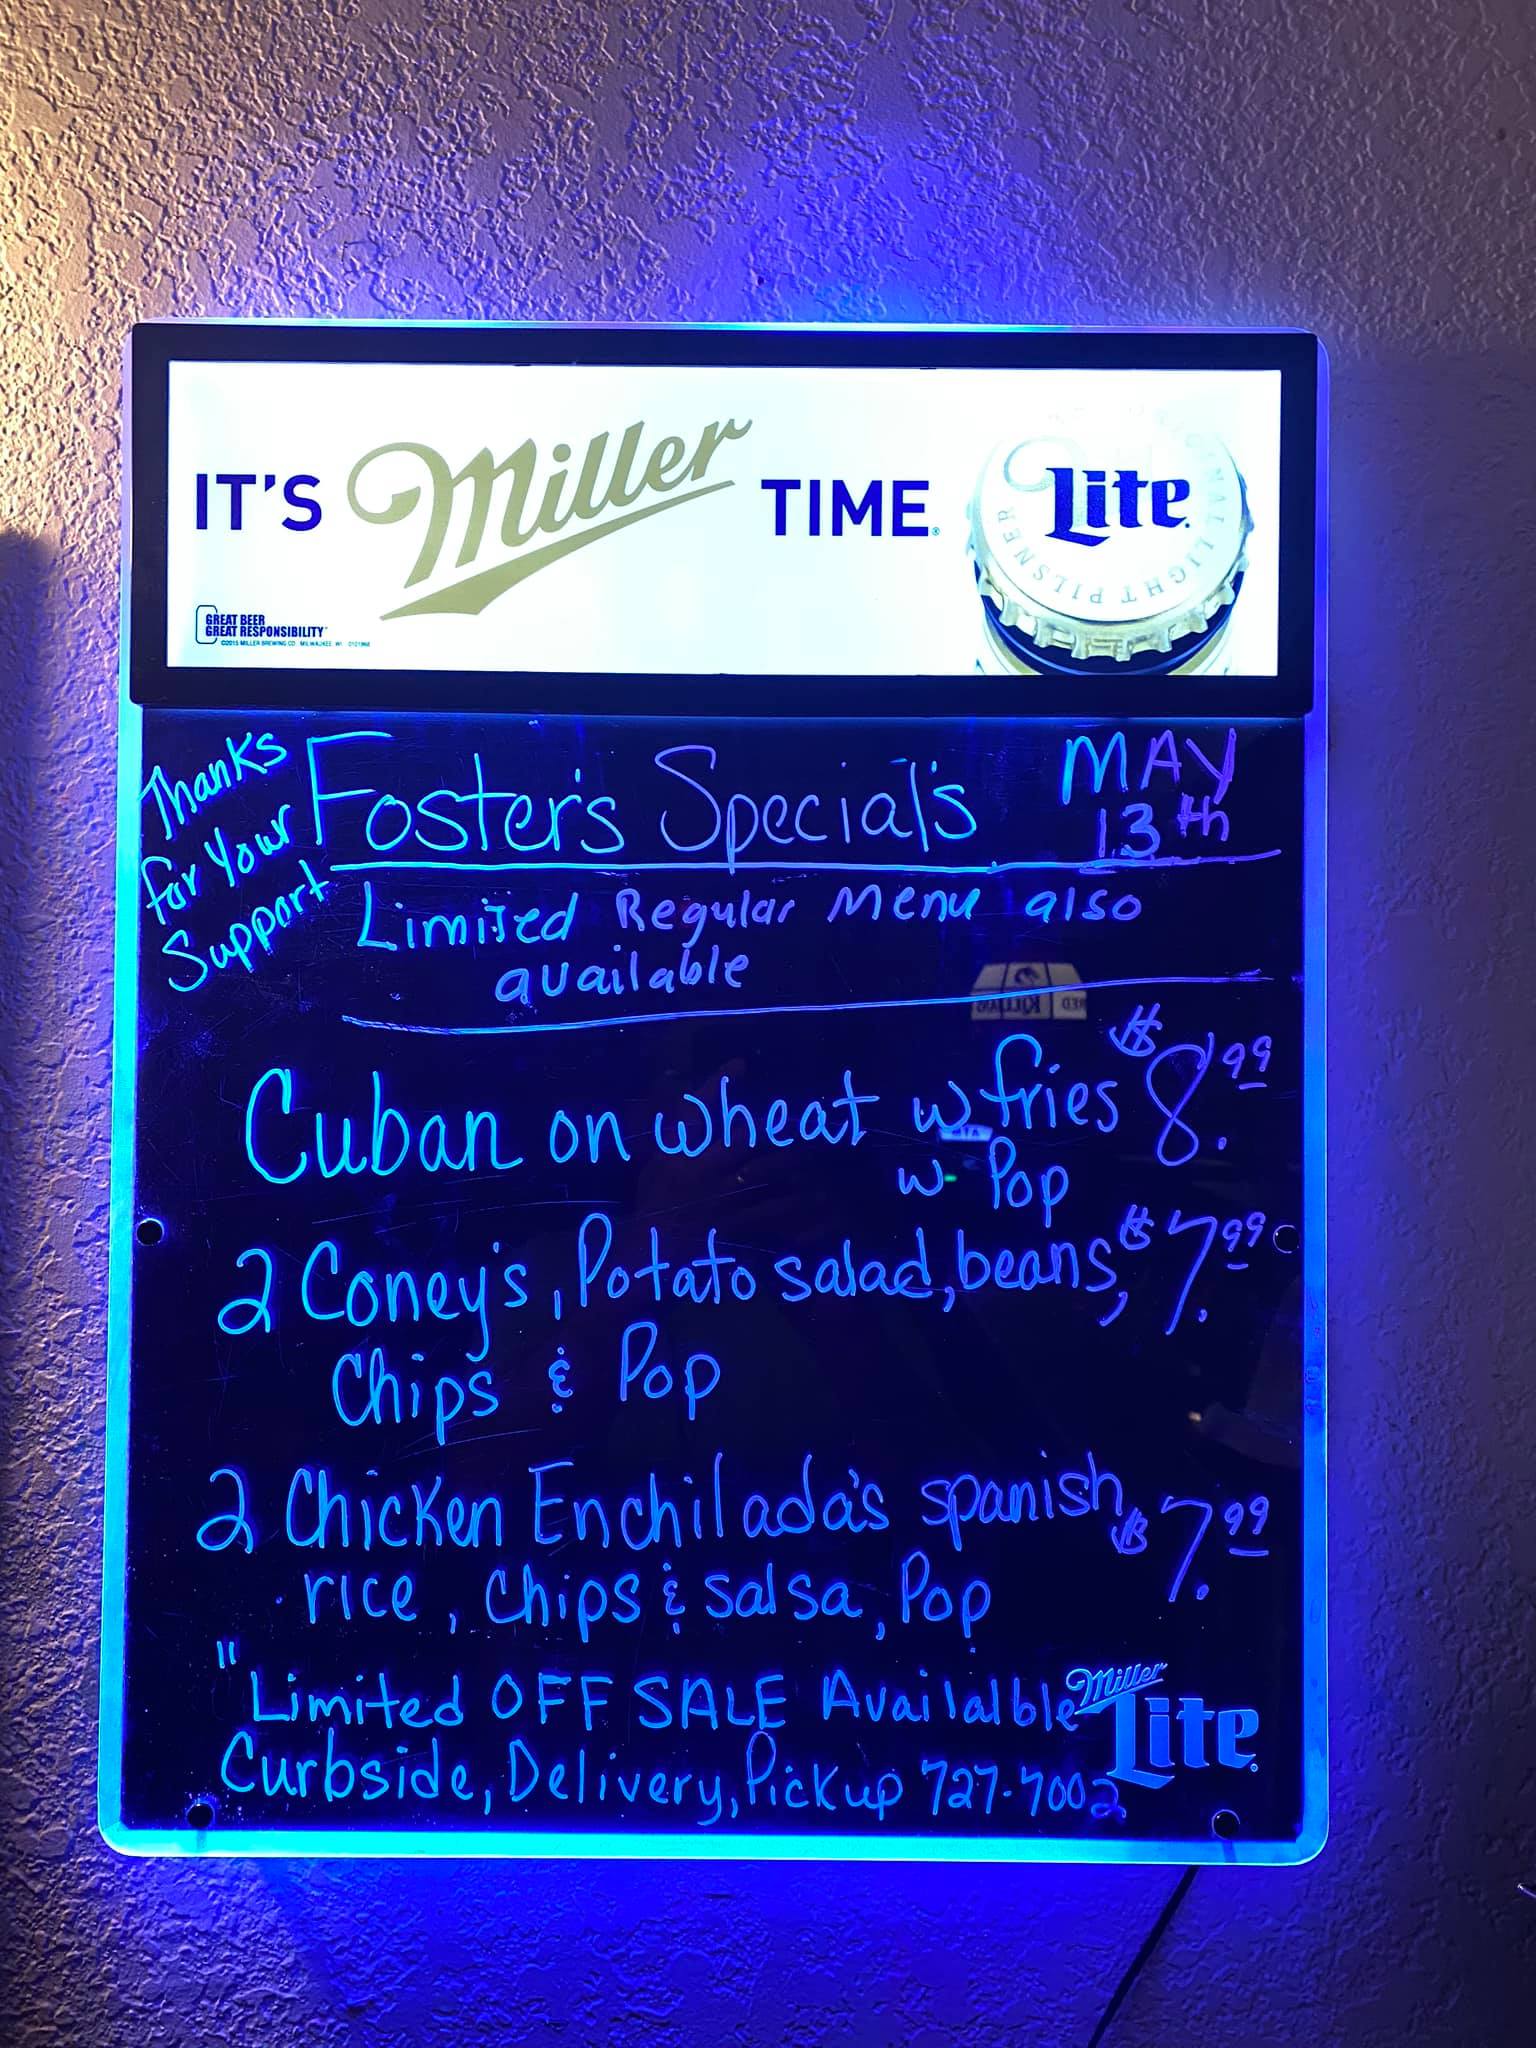 IT'S Miller TIME.
Lite
LIGHT PILSNER
GREAT BEER
GREAT RESPONSIBILITY
©2015 MILLER BREWING CO. MILWAUKEE, WI
Thanks
for Your
Support
Foster's Special's
MAY
13th
Limited Regular Menu also
available
Cuban on wheat w fries $8.99
w Pop
2 Coney's, Potato salad, beans, $7.99
Chips & Pop
2 Chicken Enchilada's spanish $7.99
rice, chips & salsa, Pop
"Limited OFF SALE Availalble
Curbside, Delivery, Pickup 727-7002
Miller
Lite